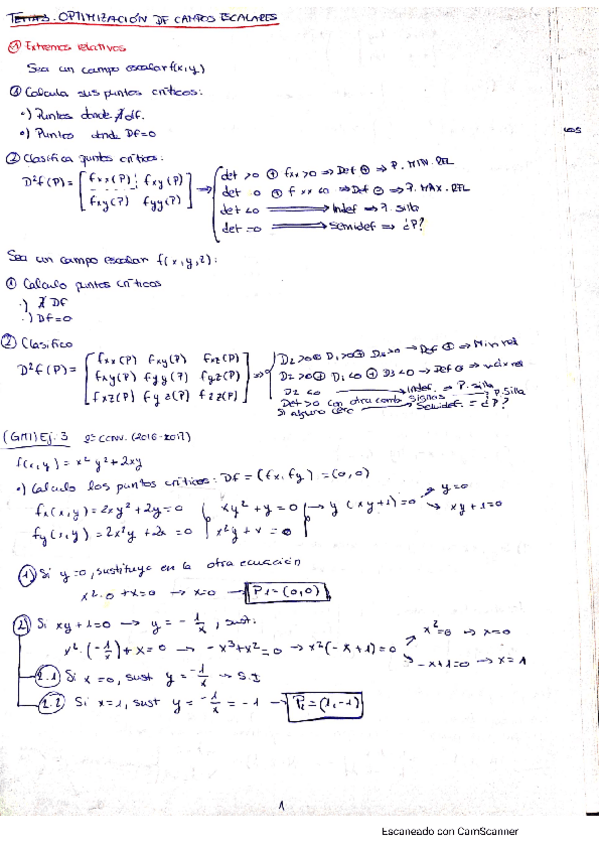 Tema 3. OPTIMIZACIÓN DE CAMPOS ESCALARES
① Extremos relativos
Sea un campo escalar f(x,y)
① Calcula sus puntos críticos:
·) Puntos donde ∄ df.
·) Puntos donde Df=0
② Clasifica puntos críticos:
D²f(P) = [fxx(P) fxy(P)
fxy(P) fyy(P)]
det >0 ⊕ fxx>0 ⇒ Def ⊕ ⇒ P. MIN. REL
det >0 ⊕ fxx<0 ⇒ Def ⊖ ⇒ P. MAX. REL
det <0 ⇒ Indef ⇒ P. silla
det =0 ⇒ Semidef ⇒ ¿P?
Sea un campo escalar f(x,y,z):
① Calculo puntos críticos
·) ∄ Df
·) Df=0
② Clasifico
D²f(P) = [fxx(P) fxy(P) fxz(P)
fxy(P) fyy(P) fyz(P)
fxz(P) fyz(P) fzz(P)]
D2>0 ⊕ D1>0 ⊕ D3>0 → Def ⊕ ⇒ Min rel
D2>0 ⊕ D1<0 ⊕ D3<0 → Def ⊖ ⇒ Máx rel
D2<0 → Indef. ⇒ P. silla
Det>0 con otra comb signos → P. Silla
Si alguno cero → Semidef. = ¿P?
(GMI) Ej. 3 2ª CONV. (2016-2017)
f(x,y) = x²y²+2xy
·) Calculo los puntos críticos: Df = (fx, fy) = (0,0)
fx(x,y) = 2xy²+2y=0 xy²+y=0 → y(xy+1)=0 → y=0
→ xy+1=0
fy(x,y) = 2x²y+2x=0 x²y+x=0
① Si y=0, sustituyo en la otra ecuación
x²·0+x=0 → x=0 → P1=(0,0)
② Si xy+1=0 → y = -1/x, sust:
x²·(-1/x)+x=0 → -x³+x²=0 → x²(-x+1)=0 → x²=0 → x=0
→ -x+1=0 → x=1
2.1 Si x=0, sust y = -1/x → S.I
2.2 Si x=1, sust y = -1/x = -1 → P2=(1,-1)
1
Escaneado con CamScanner